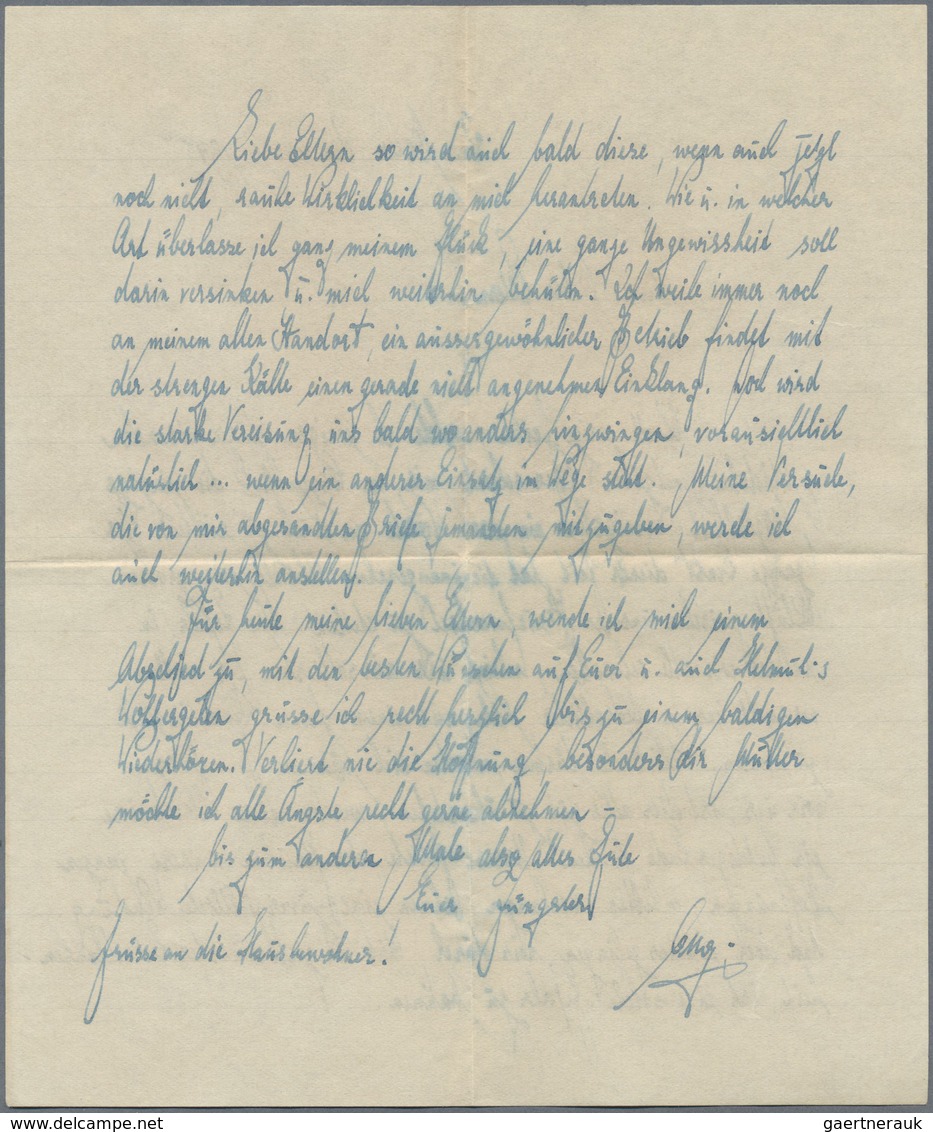 Liebe Eltern so wird auch bald diese, wenn auch jetzt
noch nicht, rauhe Wirklichkeit an mich herantreten. Wie u. in welcher
Art überlasse ich ganz meinem Glück, eine ganze Ungewissheit soll
darin versinken u. mich weiterhin behüten. Ich weile immer noch
an meinem alten Standort, ein aussergewöhnlicher Betrieb findet mit
der strengen Kälte einen gerade nicht angenehmen Einklang. Noch wird
die starke Vereisung uns bald wo anders hinzwingen, voraussichtlich
natürlich... wenn ein anderer Einsatz im Wege steht. Meine Versuche,
die von mir abgesandten Briefe jemanden mitzugeben, werde ich
auch weiterhin anstellen.
Für heute meine lieben Eltern, wende ich mich einem
Abschied zu, mit den besten Wünschen auf Euer u. auch Helmut's
Wohlergehen grüsse ich recht herzlich bis zu einem baldigen
Wiederhören. Verliert nie die Hoffnung, besonders dir, Mutter
möchte ich alle Ängste recht gerne abnehmen -
bis zum anderen Male also alles Gute
Euer Jüngster
Grüsse an die Hausbewohner!
gaertnerauk